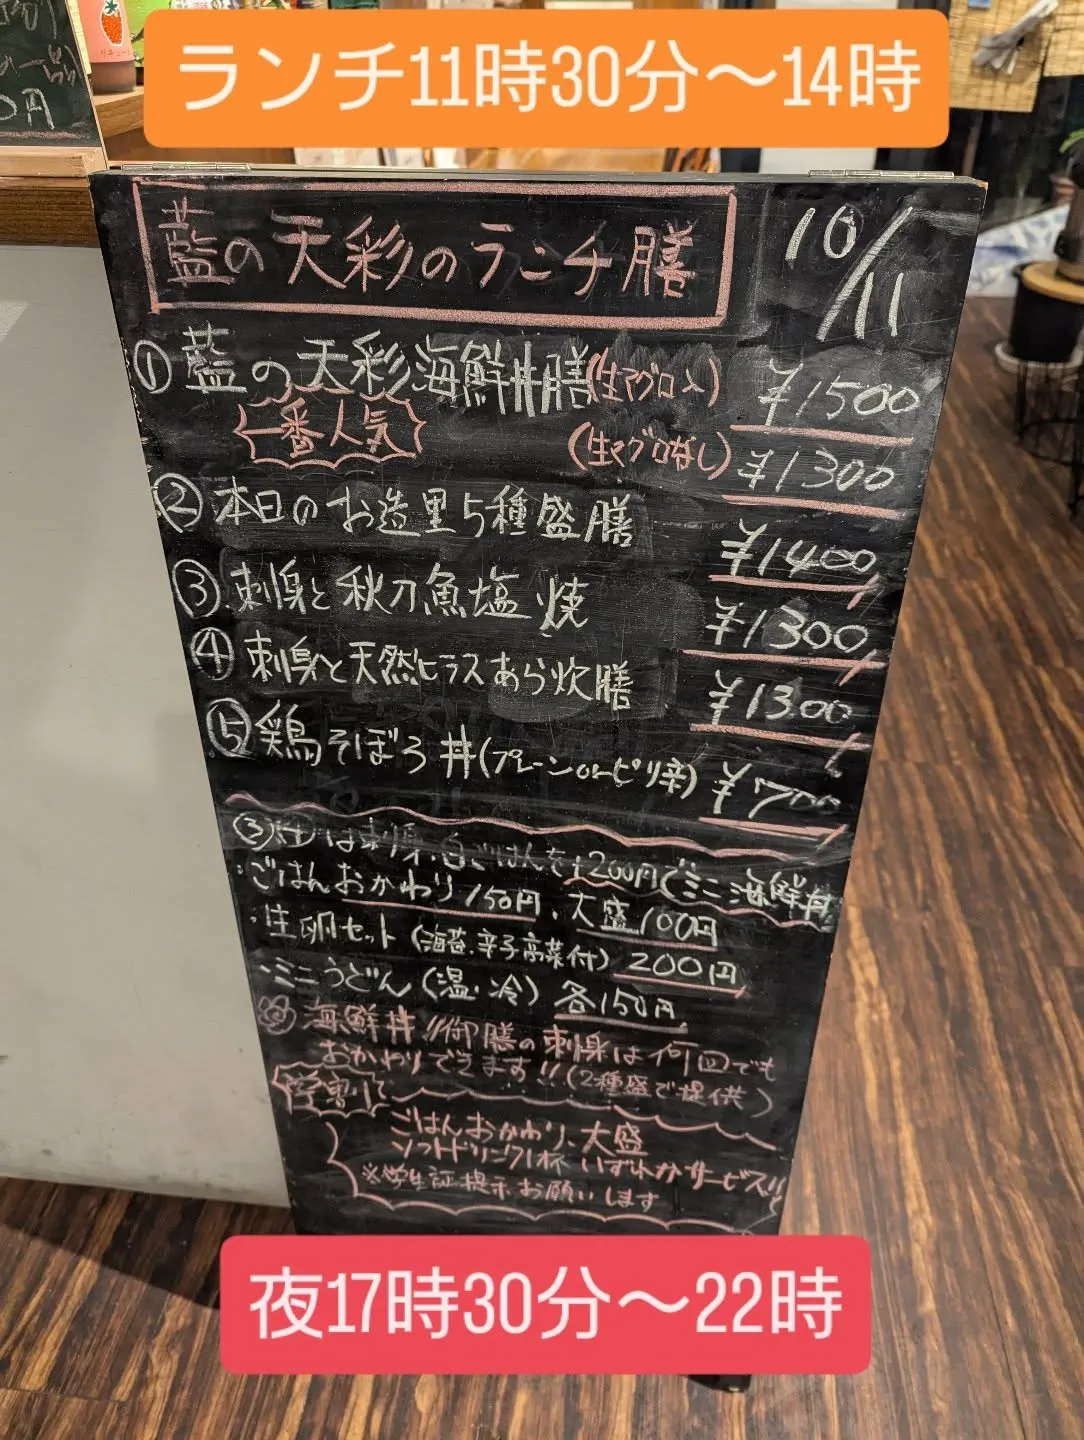 ランチ11時30分〜14時
円
藍の天彩のランチ膳
10/11
①藍の天彩海鮮丼膳(生マグロ入) ¥1500
一番人気
(生マグロなし) ¥1300
②本日のお造里5種盛膳 ¥1400
③刺身と秋刀魚塩焼 ¥1300
④刺身と天然ヒラスあら炊膳 ¥1300
⑤鶏そぼろ丼(プレーンorピリ辛) ¥700
③④は刺身、白ごはんを+200円でミニ海鮮丼
・ごはんおかわり150円、大盛100円
・生卵セット(海苔、辛子高菜付) 200円
・ミニうどん(温・冷) 各150円
海鮮丼//御膳の刺身は何回でも
おかわりできます!!(2種盛で提供)
学割
ごはんおかわり、大盛
ソフトドリンク1杯 いずれかサービス!!
※学生証提示お願いします
夜17時30分〜22時